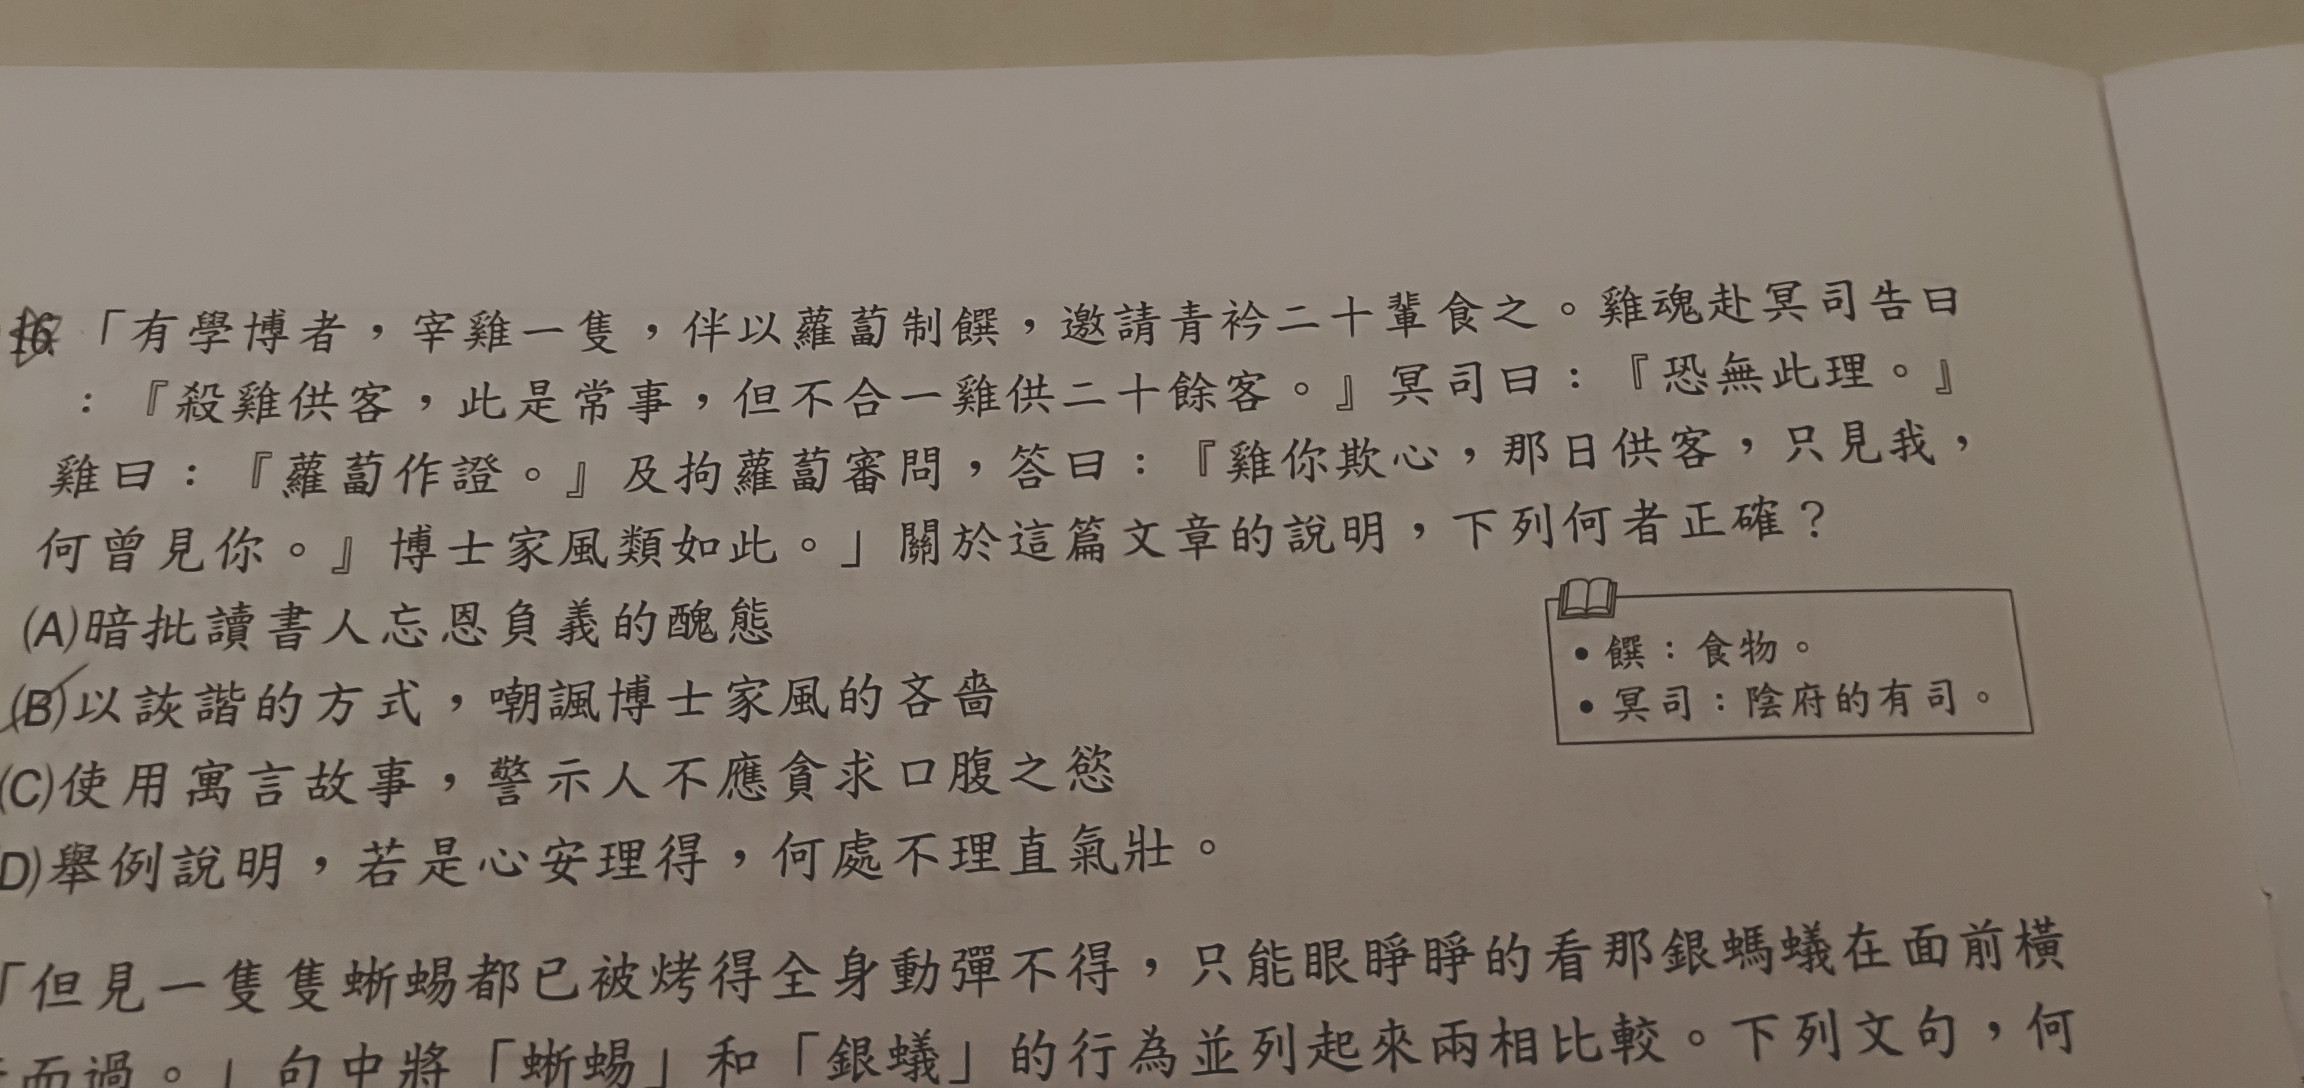 16 「有學博者，宰雞一隻，伴以蘿蔔制饌，邀請青衿二十輩食之。雞魂赴冥司告曰
：『殺雞供客，此是常事，但不合一雞供二十餘客。』冥司曰：『恐無此理。』
雞曰：『蘿蔔作證。』及拘蘿蔔審問，答曰：『雞你欺心，那日供客，只見我，
何曾見你。』博士家風類如此。」關於這篇文章的說明，下列何者正確？
(A)暗批讀書人忘恩負義的醜態
(B)以詼諧的方式，嘲諷博士家風的吝嗇
(C)使用寓言故事，警示人不應貪求口腹之慾
D)舉例說明，若是心安理得，何處不理直氣壯。
• 饌：食物。
• 冥司：陰府的有司。
「但見一隻隻蜥蜴都已被烤得全身動彈不得，只能眼睜睜的看那銀螞蟻在面前橫
而過。」句中將「蜥蜴」和「銀蟻」的行為並列起來兩相比較。下列文句，何